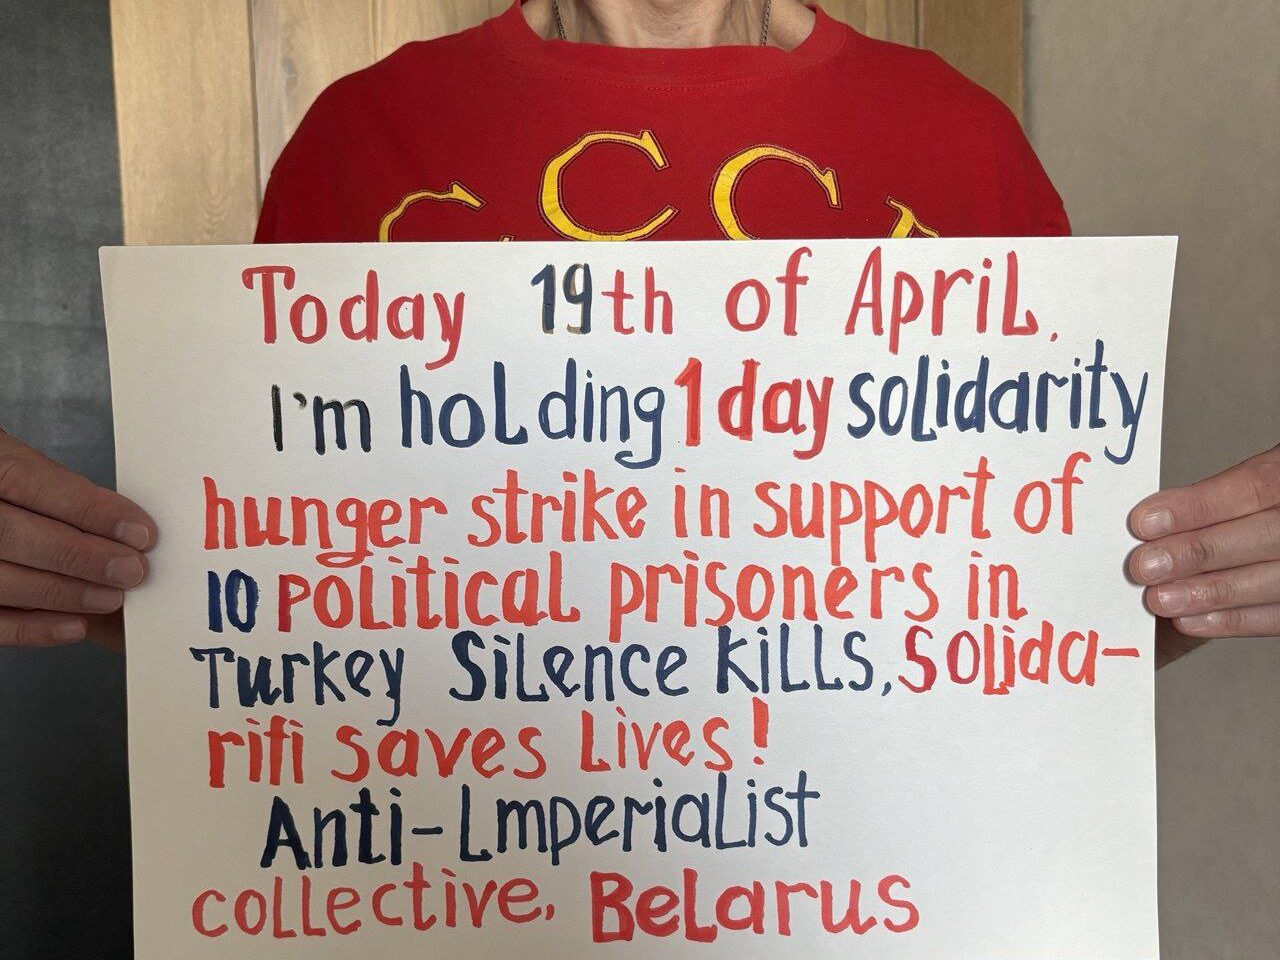 CCCP
Today 19th of April.
I'm holding 1 day solidarity
hunger strike in support of
10 political prisoners in
Turkey Silence kills, Solida-
rifi saves Lives!
Anti-Lmperialist
collective, Belarus